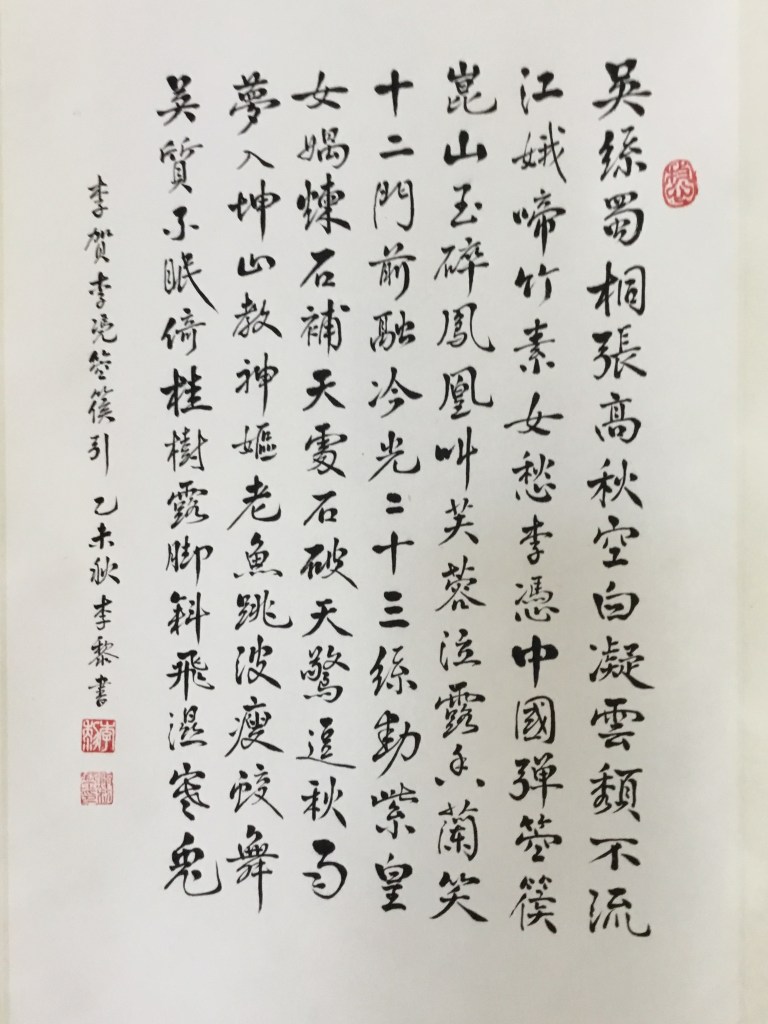 吳絲蜀桐張高秋空白凝雲頹不流
江娥啼竹素女愁李憑中國彈箜篌
崑山玉碎鳳凰叫芙蓉泣露香蘭笑
十二門前融冷光二十三絲動紫皇
女媧煉石補天處石破天驚逗秋雨
夢入坤山教神嫗老魚跳波瘦蛟舞
吳質不眠倚桂樹露脚斜飛濕寒兔
李賀李凭箜篌引 乙未秋李黎書